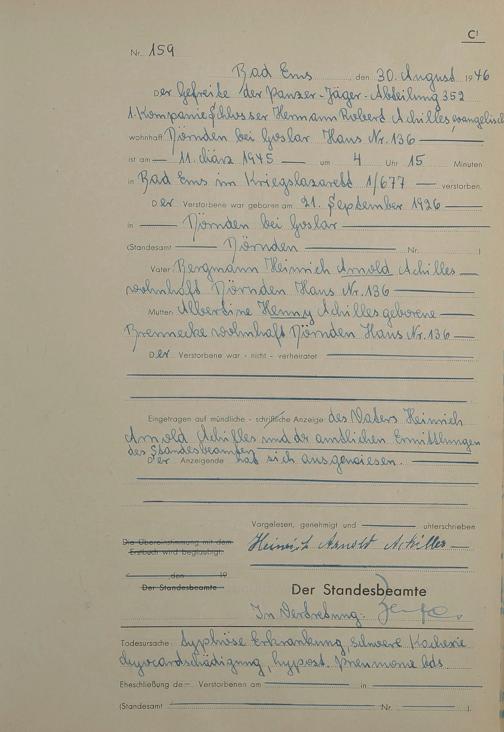 C1
Nr. 159
Bad Ems, den 30. August 1946
Der Gefreite der Panzer-Jäger-Abteilung 352
1. Kompanie Schlosser Hermann Robert Achilles, evangelisch
wohnhaft Dörnden bei Goslar Haus Nr. 136
ist am 11. März 1945 um 4 Uhr 15 Minuten
in Bad Ems im Kriegslazarett 1/677 verstorben.
Der Verstorbene war geboren am 21. September 1926
in Dörnden bei Goslar
(Standesamt Dörnden Nr. )
Vater Bergmann Heinrich Arnold Achilles
wohnhaft Dörnden Haus Nr. 136
Mutter Albertine Henny Achilles geborene
Brennecke wohnhaft Dörnden Haus Nr. 136
Der Verstorbene war - nicht - verheiratet
Eingetragen auf mündliche - schriftliche Anzeige des Vaters Heinrich
Arnold Achilles und der amtlichen Ermittlungen
des Standesbeamten
Der Anzeigende hat sich ausgewiesen.
Vorgelesen, genehmigt und unterschrieben
Die Übereinstimmung mit dem
Erstbuch wird beglaubigt.
Heinrich Arnold Achilles
, den 19
Der Standesbeamte
Der Standesbeamte
In Vertretung:
Todesursache: Typhöse Erkrankung, schwere Kachexie
Myocardschädigung, hypost. Pneumonie bds.
Eheschließung de Verstorbenen am in
(Standesamt Nr. ).